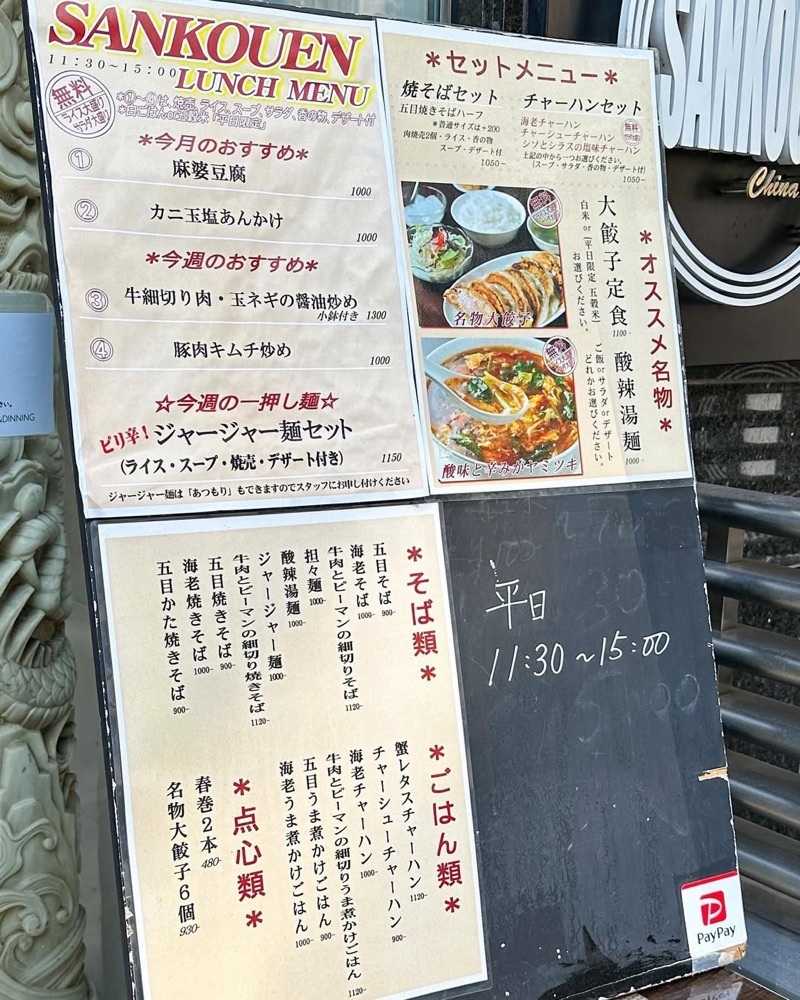 SANKOUEN
11:30~15:00
LUNCH MENU
無料
ライス大盛り
サラダ大盛り
*①~④は、焼売、ライス、スープ、サラダ、香の物、デザート付
*白ごはんor五穀米「平日限定」
*今月のおすすめ*
① 麻婆豆腐
1000
② カニ玉塩あんかけ
1000
*今週のおすすめ*
③ 牛細切り肉・玉ネギの醤油炒め
小鉢付き 1300
④ 豚肉キムチ炒め
1000
☆今週の一押し麺☆
ピリ辛! ジャージャー麺セット
(ライス・スープ・焼売・デザート付き) 1150
ジャージャー麺は「あつもり」もできますのでスタッフにお申し付けください
*セットメニュー*
焼そばセット
五目焼きそばハーフ
*普通サイズは+200
肉焼売2個・ライス・香の物
スープ・デザート付
1050-
チャーハンセット
海老チャーハン
チャーシューチャーハン
シソとシラスの塩味チャーハン
上記の中から一つお選びください。
(スープ・サラダ・香の物・デザート付)
1050-
無料
*オススメ名物*
大餃子定食
1100-
白米 or (平日限定 五穀米)
お選びください。
酸辣湯麺
1000-
ご飯orサラダorデザート
どれかお選びください。
名物大餃子
無料
酸味と辛みがヤミツキ
*そば類*
五目そば 900-
海老そば 1000-
牛肉とピーマンの細切りそば 1120-
担々麺 1000-
酸辣湯麺 1000-
ジャージャー麺 1000-
牛肉とピーマンの細切り焼きそば 1120-
五目焼きそば 900-
海老焼きそば 1000-
五目かた焼きそば 900-
*ごはん類*
蟹レタスチャーハン 1120-
チャーシューチャーハン 900-
海老チャーハン 1000-
牛肉とピーマンの細切りうま煮かけごはん 1120-
五目うま煮かけごはん 900-
海老うま煮かけごはん 1000-
*点心類*
春巻2本 480-
名物大餃子6個 930-
平日
11:30~15:00
PayPay
SANKO
China
&DINNING